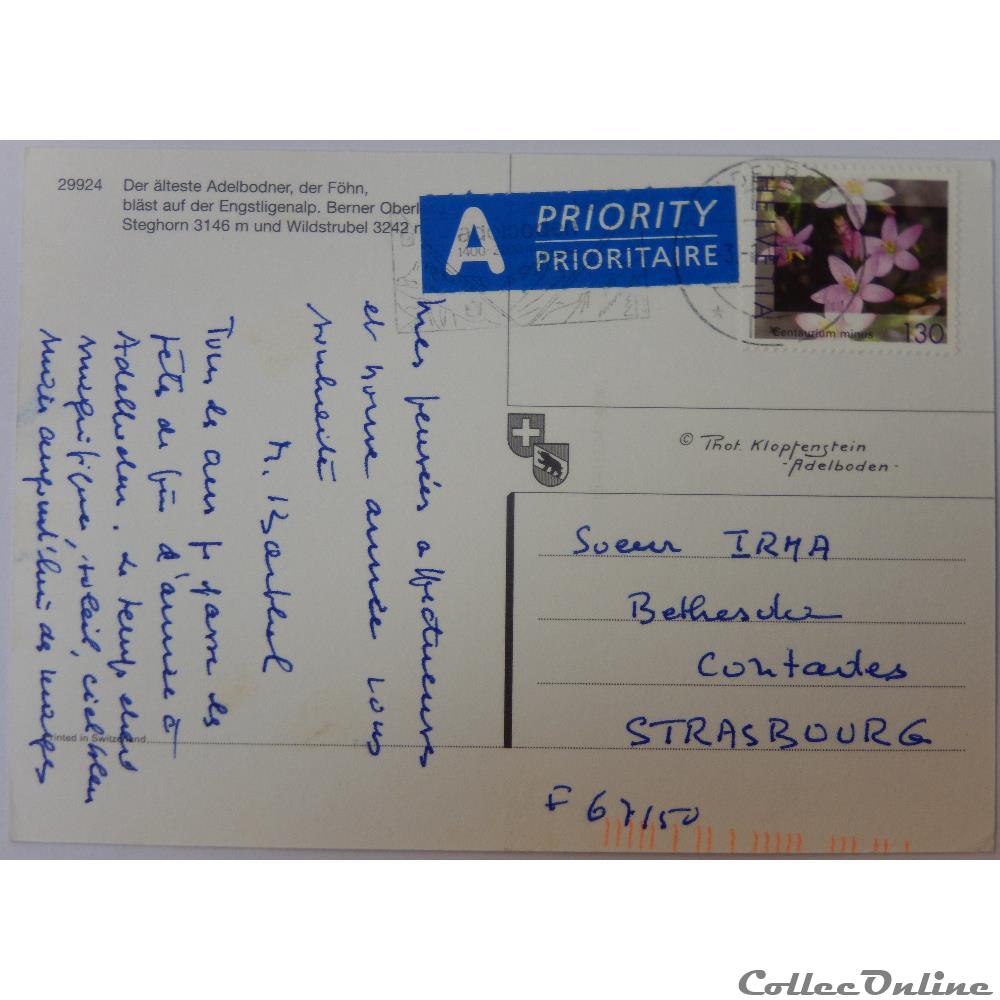 29924 Der älteste Adelbodner, der Föhn,
bläst auf der Engstligenalp. Berner Oberl
Steghorn 3146 m und Wildstrubel 3242 m
A PRIORITY
PRIORITAIRE
1400
HELVETIA
Centaurium minus 130
© Phot. Klopfenstein
- Adelboden -
Soeur IRMA
Bethesda
Contades
STRASBOURG
F 67150
Tous de aux je passe les
fêtes de fin d'année à
Adelboden. Le temps était
magnifique, soleil, ciel bleu
mais aujourd'hui des nuages
Mes pensées affectueuses
et bonne année vous
souhaite
M. Barthel
Printed in Switzerland
CollecOnline